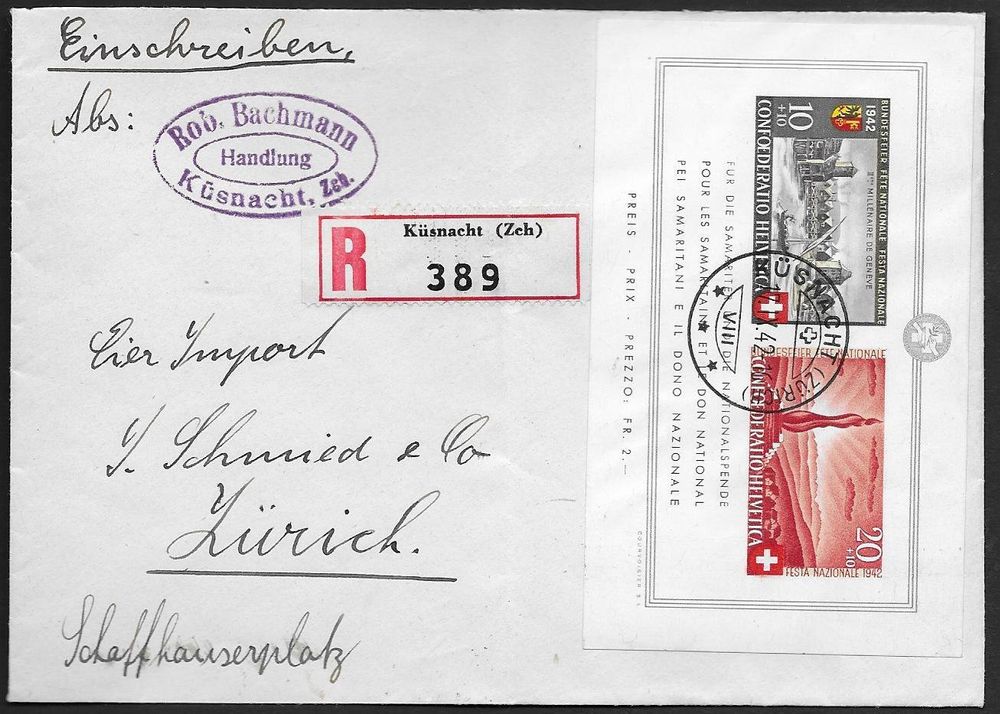 Einschreiben,
Abs:
Rob. Bachmann
Handlung
Küsnacht, Zch.
R
Küsnacht (Zch)
389
Eier Import
J. Schmied & Co
Zürich.
Schaffhauserplatz
BUNDESFEIER FÊTE NATIONALE FESTA NAZIONALE
1942
IIME MILLENAIRE DE GENEVE
10
+10
CONFOEDERATIO HELVETICA
BUNDESFEIER FETE NATIONALE
CONFOEDERATIO HELVETICA
20
+10
FESTA NAZIONALE 1942
KÜSNACHT (ZÜRCH)
42
VIII
FÜR DIE SAMARITER UND DIE NATIONALSPENDE
POUR LES SAMARITAINS ET LE DON NATIONAL
PEI SAMARITANI E IL DONO NAZIONALE
PREIS - PRIX - PREZZO: FR. 2.—
COURVOISIER S.A.